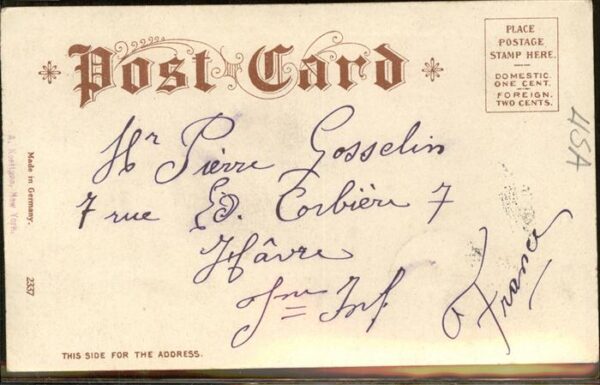 Post Card
PLACE
POSTAGE
STAMP HERE.
DOMESTIC
ONE CENT.
FOREIGN.
TWO CENTS.
USA
Mr Pierre Gosselin
7 rue Ed. Corbière 7
Hâvre
Sne Inf
France
Made in Germany.
New York.
2337
THIS SIDE FOR THE ADDRESS.